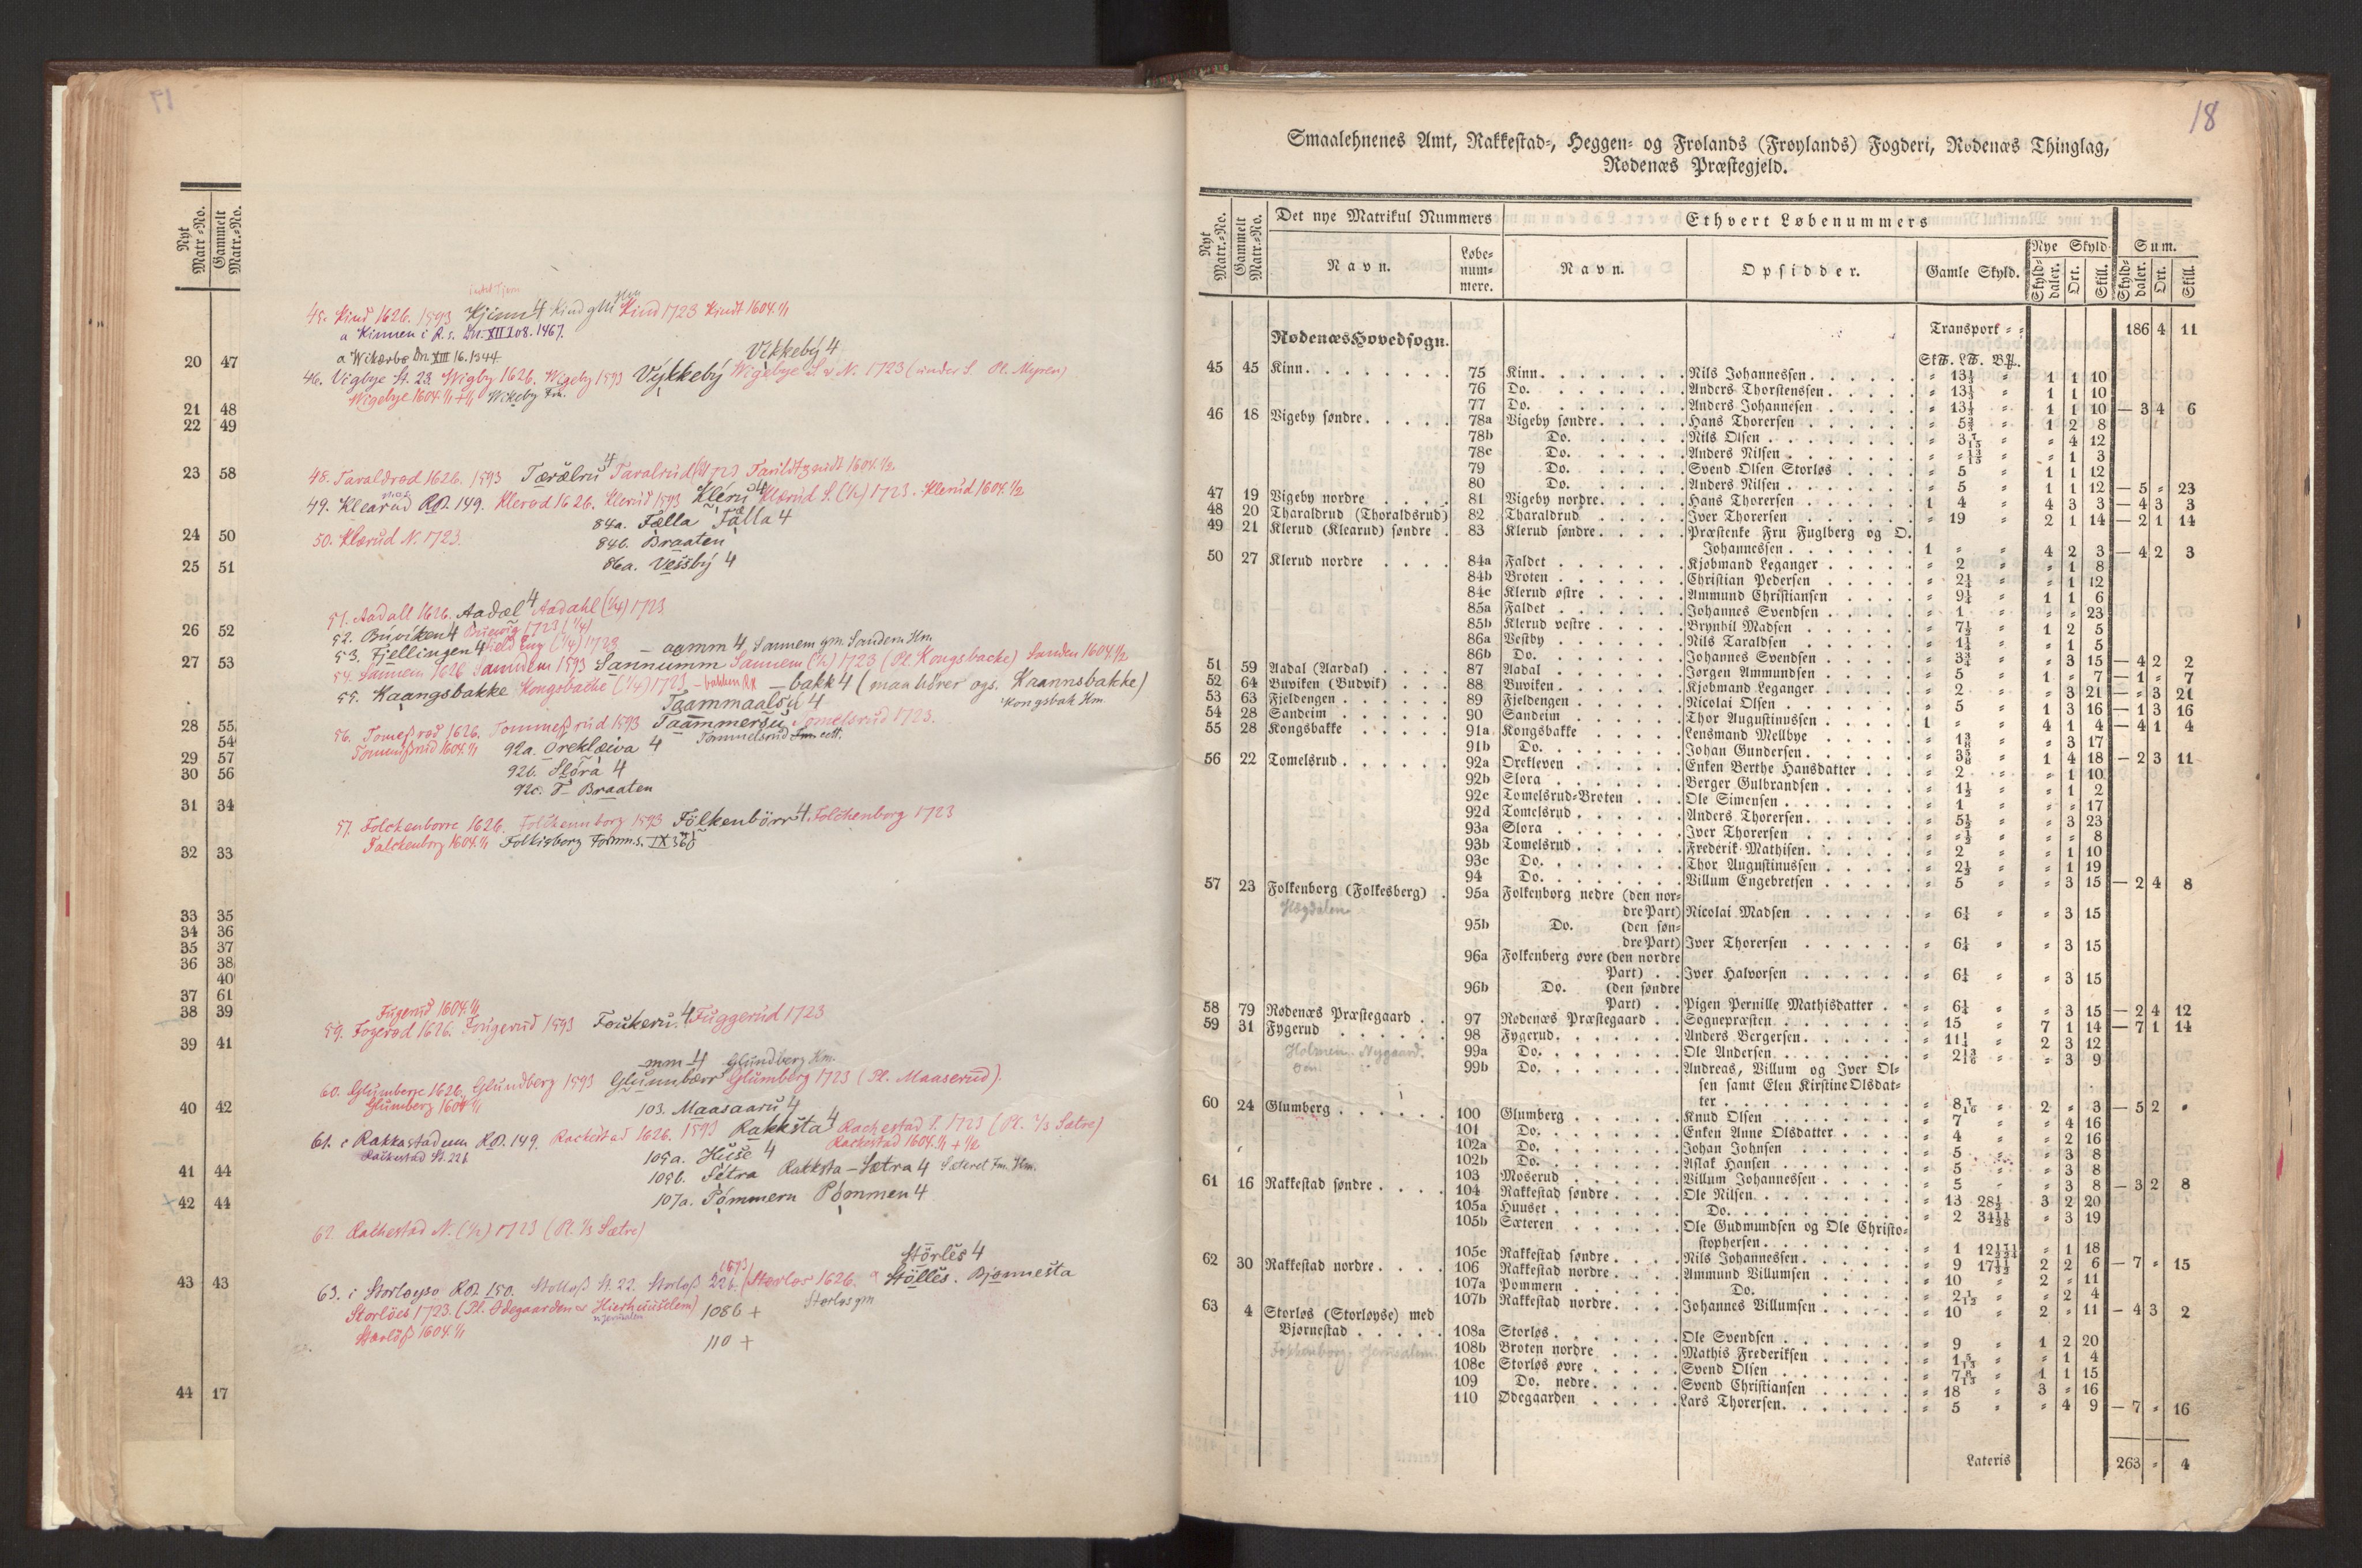 Nyt Matr.-No.
Gammelt Matr.-No.
20 47
21 48
22 49
23 58
24 50
25 51
26 52
27 53
28 55
54
29 57
30 56
31 34
32 33
33 35
34 36
35 37
36 38
40
37 61
38 39
39 41
40 42
41 44
42 44
43 43
44 17
45. Kind 1626. 1593 Kjinn 4 Kind 1723 Kindt 1604. 1/1
a Kinnen i R. s. Dn. XIII 108. 1467.
a Wikærbø Dn. XIII 16. 1344
Vikkebý 4
46. Vigbye St. 23. Wigby 1626. Wigeby 1593 Výkkebý Wigebye S. & N. 1723 (under S. Pl. Myren)
Wigebye 1604. 1/1 + 1/1 Wikeby Fm.
48. Taraldrød 1626. 1593 Tærælru 4 Taralrud 1723 1604. 1/2.
49. Klearud RB. 149. Klerød 1626. Klerud 1593 Kléru 4 Klærud S. (1/2) 1723. Klerud 1604. 1/2
84a. Fælla Fälla 4
50. Klærud N. 1723.
84b. Braaten
86a. Vessbý 4
51. Aadall 1626. Aadæl 4 Aadahl (1/4) 1723
52. Buviken 4 Buevig 1723 (1/4)
53. Fjellingen 4 Field Eng (1/4) 1723
54. Sannem 1626 Sanndem 1593 Sannumm Sannem (1/2) 1723 (Pl. Kongsbache) Sanden 1604. 1/2
55. Kaangsbakke Kongsbache (1/4) 1723 - bakken RK - bakk 4 (man hörer ogs. Kaannsbakke)
Taammaalsu 4
Kongsbak Hm.
56. Tomeßrød 1626. Tommeßrud 1593 Taammersu Tomelsrud 1723.
Tommelsrud Fm. ett.
92a. Oreklæiva 4
92b. Slóra 4
92c. T- Braaten
57. Folckenborre 1626. Folckennborg 1593 Fölkenbörr 4. Folchenborg 1723
Falckenborg 1604. 1/1 Folkisborg Fornm. s. IX 368
Fugerud 1604. 1/1
59. Fogerød 1626. Fougerud 1593 Foukeru. 4 Fuggerud 1723
- mm 4 Glundberg Hm.
60. Glumberge 1626. Glundberg 1593 Glumbærr Glumberg 1723 (Pl. Maaserud).
Glumberg 1604 1/1
103. Maasaaru 4
61. i Rakkastadum RB. 149. Rackestad 1626. 1593 Rakksta 4 Rachestad S. 1723 (Pl. 1/3 Sætre)
Rackestad St. 22b
Rackestad 1604. 1/1 + 1/2
105a. Huse 4
105b. Sétra Rakksta-Sætra 4 Sæteret Fm. Hm.
107a. Pómmern Pommen 4
62. Rachestad N. (1/2) 1723 (Pl. 1/3 Sætre)
Störlés 4
63. i Storløyso RB. 150. Stolløß St. 22. Storløß 22b. Storløs 1626. a Stölles. Bjønnesta
Storlöes 1723. (Pl. Ödegaarden & Hierhuuslem) 1086 +
Storløs gm
Storlöß 1604. 1/1
110 +
18
Smaalehnenes Amt, Rakkestad-, Heggen- og Frølands (Frøylands) Fogderi, Rødenæs Thinglag,
Rødenæs Præstegjeld.
Nyt Matr.-No.
Gammelt Matr.-No.
Det nye Matrikul Nummers
Ethvert Løbenummers
Navn.
Løbenummere.
Navn.
Opsidder.
Gamle Skyld.
Nye Skyld
Sum.
Skylddaler. Ort. Skill.
Skylddaler. Ort. Skill.
Transport 186 4 11
Rødenæs Hovedsogn.
45 45 Kinn 75 Kinn Nils Johannessen 13 1/3 1 1 10
76 Do. Anders Thorstenssen 13 1/3 1 1 10
77 Do. Anders Johannesen 13 1/3 1 1 10 — 3 4 6
46 18 Vigeby søndre 78a Vigeby søndre Hans Thorersen 1 2 8
78b Do. Nils Olsen 4 12
78c Do. Anders Nilsen 1 3
79 Do. Svend Olsen Storløs 5 1 1 12
80 Do. Anders Nilsen 5 1 1 12 — 5 23
47 19 Vigeby nordre 81 Vigeby nordre Hans Thorersen 1 4 4 3 3 — 4 3 3
48 20 Tharaldrud (Thoraldsrud) 82 Tharaldrud Iver Thorersen 19 2 1 14 — 2 1 14
49 21 Klerud (Klearud) søndre 83 Klerud søndre Præstenke Fru Fuglberg og O.
Johannessen 1 4 2 3 — 4 2 3
50 27 Klerud nordre 84a Faldet Kjøbmand Leganger 2 1 8
84b Broten Christian Pedersen 2 1/4 1 12
84c Klerud østre Ammund Christiansen 9 1/4 1 1 6
85a Faldet Johannes Svendsen 1 23
85b Klerud vestre Brynhil Madsen 7 1/2 1 2 5
86a Vestby Nils Taraldsen 1 1/4 1 5
86b Do. Johannes Svendsen 3 3/4 3 15 — 4 2 2
51 59 Aadal (Aardal) 87 Aadal Jørgen Ammundsen 5 1 7 — 1 7
52 64 Buviken (Budvik) 88 Buviken Kjøbmand Leganger 2 3 21 — 3 21
53 63 Fjeldengen 89 Fjeldengen Nicolai Olsen 5 1 3 16 — 1 3 16
54 28 Sandeim 90 Sandeim Thor Augustinussen 1 4 1 4 — 4 1 4
55 28 Kongsbakke 91a Kongsbakke Lensmand Mellbye 1 3/8 3 17
91b Do. Johan Gundersen 3 5/8 1 4 18 — 2 3 11
56 22 Tomelsrud 92a Orekleven Enken Berthe Hansdatter 2 1 10
92b Slora Berger Gulbrandsen 1 1/2 1 2
92c Tomelsrud-Broten Ole Simensen 1 17
92d Tomelsrud Anders Thorersen 5 1/2 3 23
93a Slora Iver Thorersen 1/2 8
93b Tomelsrud Frederik Mathisen 2 1 10
93c Do. Thor Augustinussen 2 1/2 1 19
94 Do. Villum Engebretsen 5 3 15 — 2 4 8
57 23 Folkenborg (Folkesberg) 95a Folkenborg nedre (den nordre Part) Nicolai Madsen 6 1/4 3 15
Høgdalen
95b Do. (den søndre Part) Iver Thorersen 6 1/4 3 15
96a Folkenberg øvre (den nordre
Part) Iver Halvorsen 6 1/4 3 15
96b Do. (den søndre
Part) Pigen Pernille Mathisdatter 6 1/4 3 15 — 2 4 12
58 79 Rødenæs Præstegaard 97 Rødenæs Præstegaard Sognepræsten 15 7 1 14 — 7 1 14
59 31 Fygerud 98 Fygerud Anders Bergersen 11 1/4 2 3 12
Holmen. Nygaard.
99a Do. Ole Andersen 2 13/16 3 9
99b Do. Andreas, Villum og Iver Olsen samt Elen Kirstine Olsdatter 8 7/16 2 3 — 5 2
60 24 Glumberg 100 Glumberg Knud Olsen 7 4 16
101 Do. Enken Anne Olsdatter 4 2 16
102a Do. Johan Johnsen 5 3 8
102b Do. Aslak Hansen 5 3 8
103 Moserud Villum Johannessen 5 3 8 — 3 2 8
61 16 Rakkestad søndre 104 Rakkestad søndre Ole Nilsen 13 28 1/2 3 2 20
105a Huuset Do. 2 3 19
105b Sæteren Ole Gudmundsen og Ole Christostophersen 1 1 18
105c Rakkestad søndre Nils Johannessen 9 2 2 6 — 7 15
62 30 Rakkestad nordre 106 Rakkestad nordre Ammund Villumsen 10 2 11
107a Pommern Do. 2 1/12 2 4
107b Rakkestad nordre Johannes Villumsen 10 2 11 — 4 3 2
63 4 Storløs (Storløyse) med
Bjørnestad 108a Storløs Ole Svendsen 9 1 2 20
Folkenborg. Jerusalem.
108b Broten nordre Mathis Frederiksen 1 5/13 1 4
108c Storløs øvre Svend Olsen 7 8/13 1 1 15
109 Do. nedre Svend Christiansen 18 3 16
110 Ødegaarden Lars Thorersen 5 4 9 — 7 16
Lateris 263 4